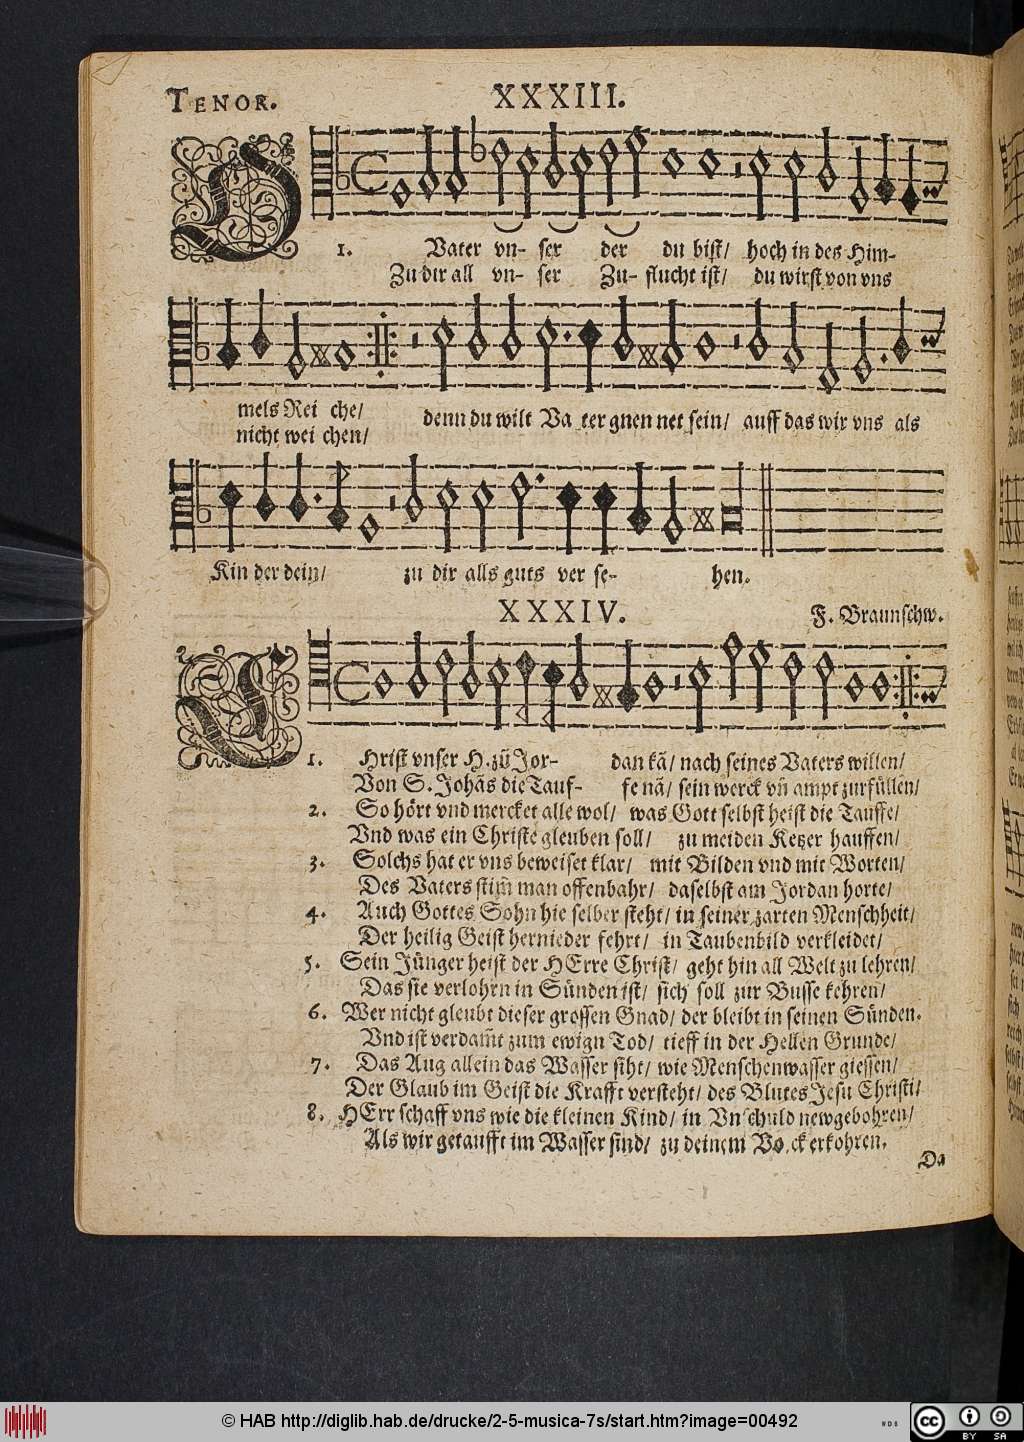 TENOR.
XXXIII.
O
1. Vater vn- ser der du bist/ hoch in des Him-
Zu dir all vn- ser Zu- flucht ist/ du wirst von vns
mels Rei che/ denn du wilt Va ter gnen net sein/ auff das wir vns als
nicht wei chen/
Kin der dein/ zu dir alls guts ver se- hen.
XXXIV.
F. Braunschw.
C
1. Hrist vnser H. zū Jor- dan kā/ nach seines Vaters willen/
Von S. Johās die Tauf- fe nā/ sein werck vn̄ ampt zurfüllen/
2. So hört vnd mercket alle wol/ was Gott selbst heist die Tauffe/
Vnd was ein Christe gleuben soll/ zu meiden Ketzer hauffen/
3. Solchs hat er vns beweiset klar/ mit Bilden vnd mit Worten/
Des Vaters stim̄ man offenbahr/ daselbst am Jordan horte/
4. Auch Gottes Sohn hie selber steht/ in seiner zarten Menschheit/
Der heilig Geist hernieder fehrt/ in Taubenbild verkleidet/
5. Sein Jünger heist der HErre Christ/ geht hin all Welt zu lehren/
Das sie verlohrn in Sünden ist/ sich soll zur Busse kehren/
6. Wer nicht gleubt dieser grossen Gnad/ der bleibt in seinen Sünden.
Vnd ist verdam̄t zum ewign Tod/ tieff in der Hellen Grunde/
7. Das Aug allein das Wasser siht/ wie Menschenwasser giessen/
Der Glaub im Geist die Krafft versteht/ des Blutes Jesu Christi/
8. HErr schaff vns wie die kleinen Kind/ in Vnschuld newgebohren/
Als wir getaufft im Wasser sind/ zu deinem Vo ck erkohren.
Da
© HAB http://diglib.hab.de/drucke/2-5-musica-7s/start.htm?image=00492
WDB
CC BY SA